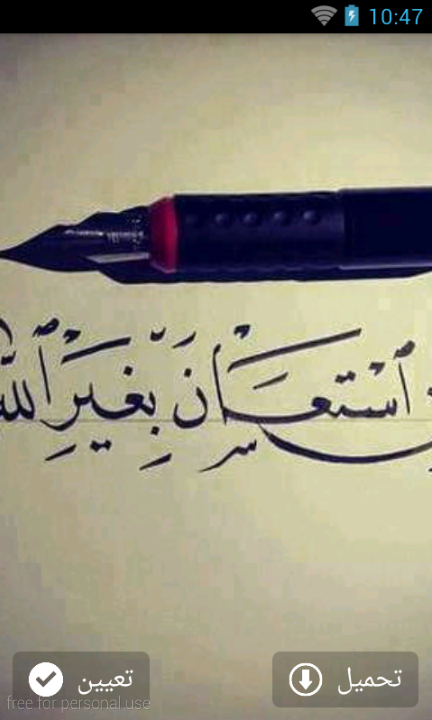 10:47
استعان بغير الله
تحميل
تعيين
free for personal use